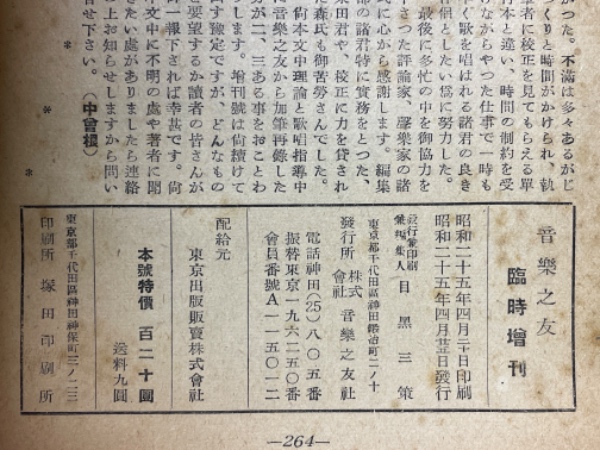 がつた。不滿は多々あるがじ
つくりと時間がかけられ、執
筆者に校正を見てもらえる單
行本と違い、時間の制約を受
けながらやつた仕事で一時も
早く歌を唱はれる諸君の良き
伴侶としたい爲に努力した。
最後に多忙の中を御協力を
下さつた評論家、聲樂家の諸
氏に心から感謝します。編集
部の諸君特に實務をとつた、
柴田君や、校正に力を貸され
た森氏も御苦勞さんでした。
尙本文中理論と歌唱指導中
に音樂之友から加筆再錄した
分が二、三ある事をおことわ
りします。增刊號は尙續けて
出す豫定ですが、どんなもの
を要望するか讀者の皆さんが
御一報下されば幸甚です。尙
本文中に不明の處や著者に聞
きたい處がありましたら連絡
の上お知らせしますから問い
合せ下さい。（中曾根）
音樂之友
臨時增刊
昭和二十五年四月二十日印刷
昭和二十五年四月廿五日發行
發行兼印刷
兼編集人 目黑三策
東京都千代田區神田鍛治町二ノ十
發行所 株式會社 音樂之友社
電話神田(25)八〇五番
振替東京一九六二五〇番
會員番號A一一五〇一二
配給元
東京出版販賣株式會社
本號特價 百二十圓
送料九圓
東京都千代田區神田神保町三ノ二三
印刷所 塚田印刷所
—264—